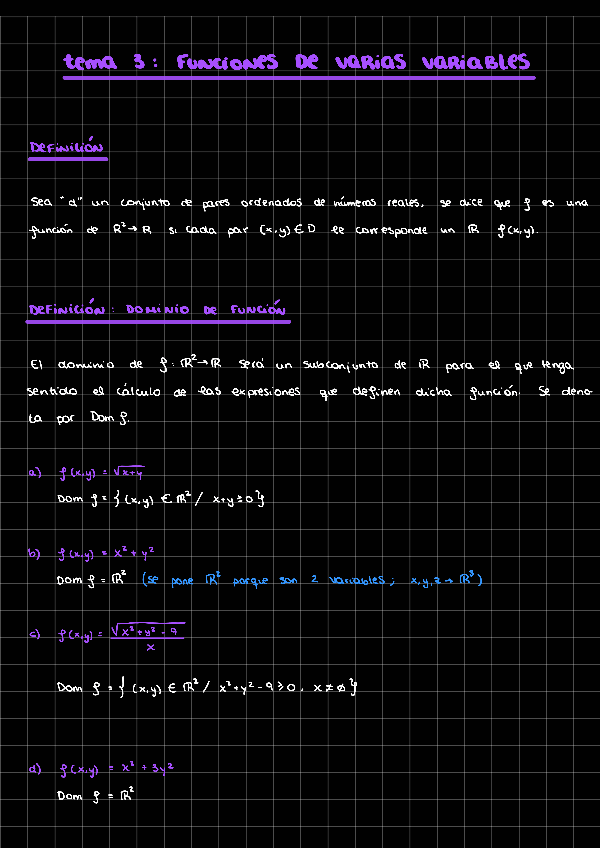 tema 3: Funciones de varias variables
Definición
Sea "d" un conjunto de pares ordenados de números reales, se dice que f es una
función de R²→R si cada par (x,y) ∈ D le corresponde un ℝ f(x,y).
Definición: Dominio de función
El dominio de f: ℝ²→ℝ será un subconjunto de ℝ para el que tenga
sentido el cálculo de las expresiones que definen dicha función. Se deno-
ta por Dom f.
a) f(x,y) = √x+y
Dom f = {(x,y) ∈ ℝ² / x+y ≥ 0}
b) f(x,y) = x² + y²
Dom f = ℝ² (se pone ℝ² porque son 2 variables; x,y,z → ℝ³)
c) f(x,y) = √x²+y²-9
x
Dom f = {(x,y) ∈ ℝ² / x²+y²-9 ≥ 0, x ≠ 0}
d) f(x,y) = x² + 3y²
Dom f = ℝ²